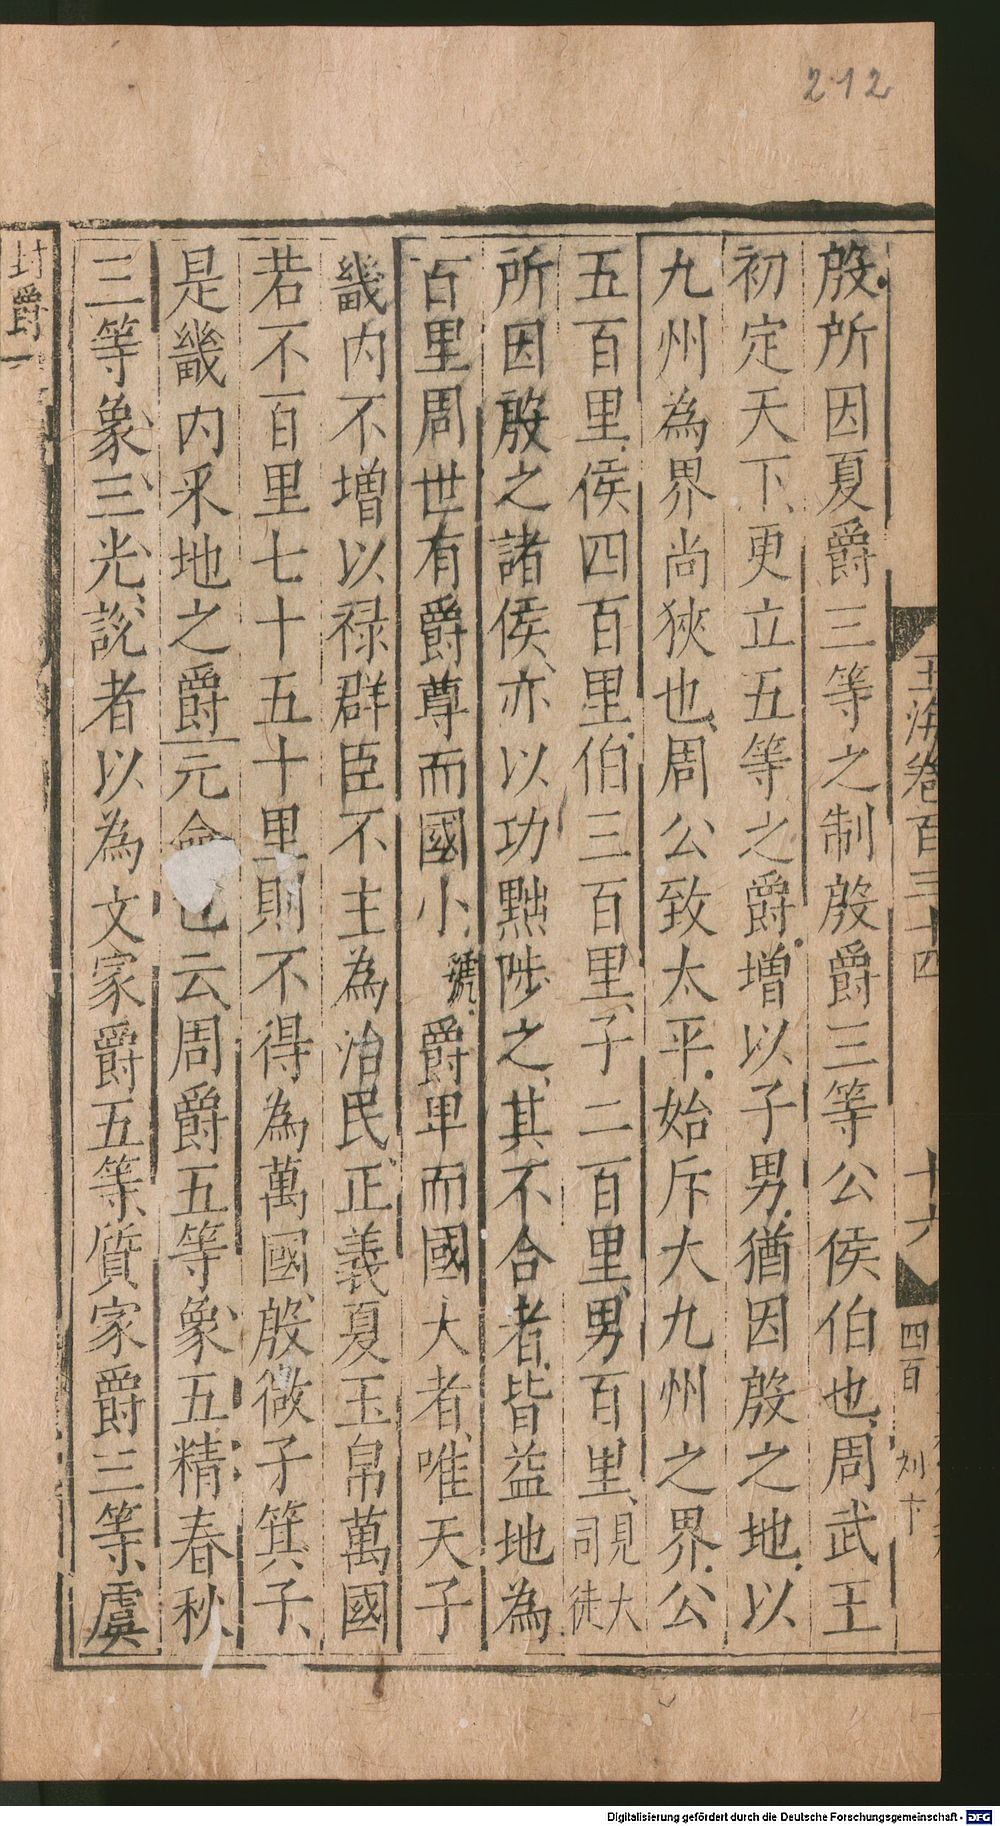 212
玉海卷百三十四
十六
四百
刘卞
殷所因夏爵三等之制殷爵三等公侯伯也周武王
初定天下更立五等之爵増以子男猶因殷之地以
九州為界尚狹也周公致太平始斥大九州之界公
五百里侯四百里伯三百里子二百里男百里見大司徒
所因殷之諸侯亦以功黜陟之其不合者皆益地為
百里周世有爵尊而國小虢爵卑而國大者唯天子
畿内不増以禄群臣不主為治民正義夏玉帛萬國
若不百里七十五十里則不得為萬國殷微子箕子
是畿内采地之爵元命包云周爵五等象五精春秋
三等象三光說者以為文家爵五等質家爵三等虞
封爵一
Digitalisierung gefördert durch die Deutsche Forschungsgemeinschaft - DFG